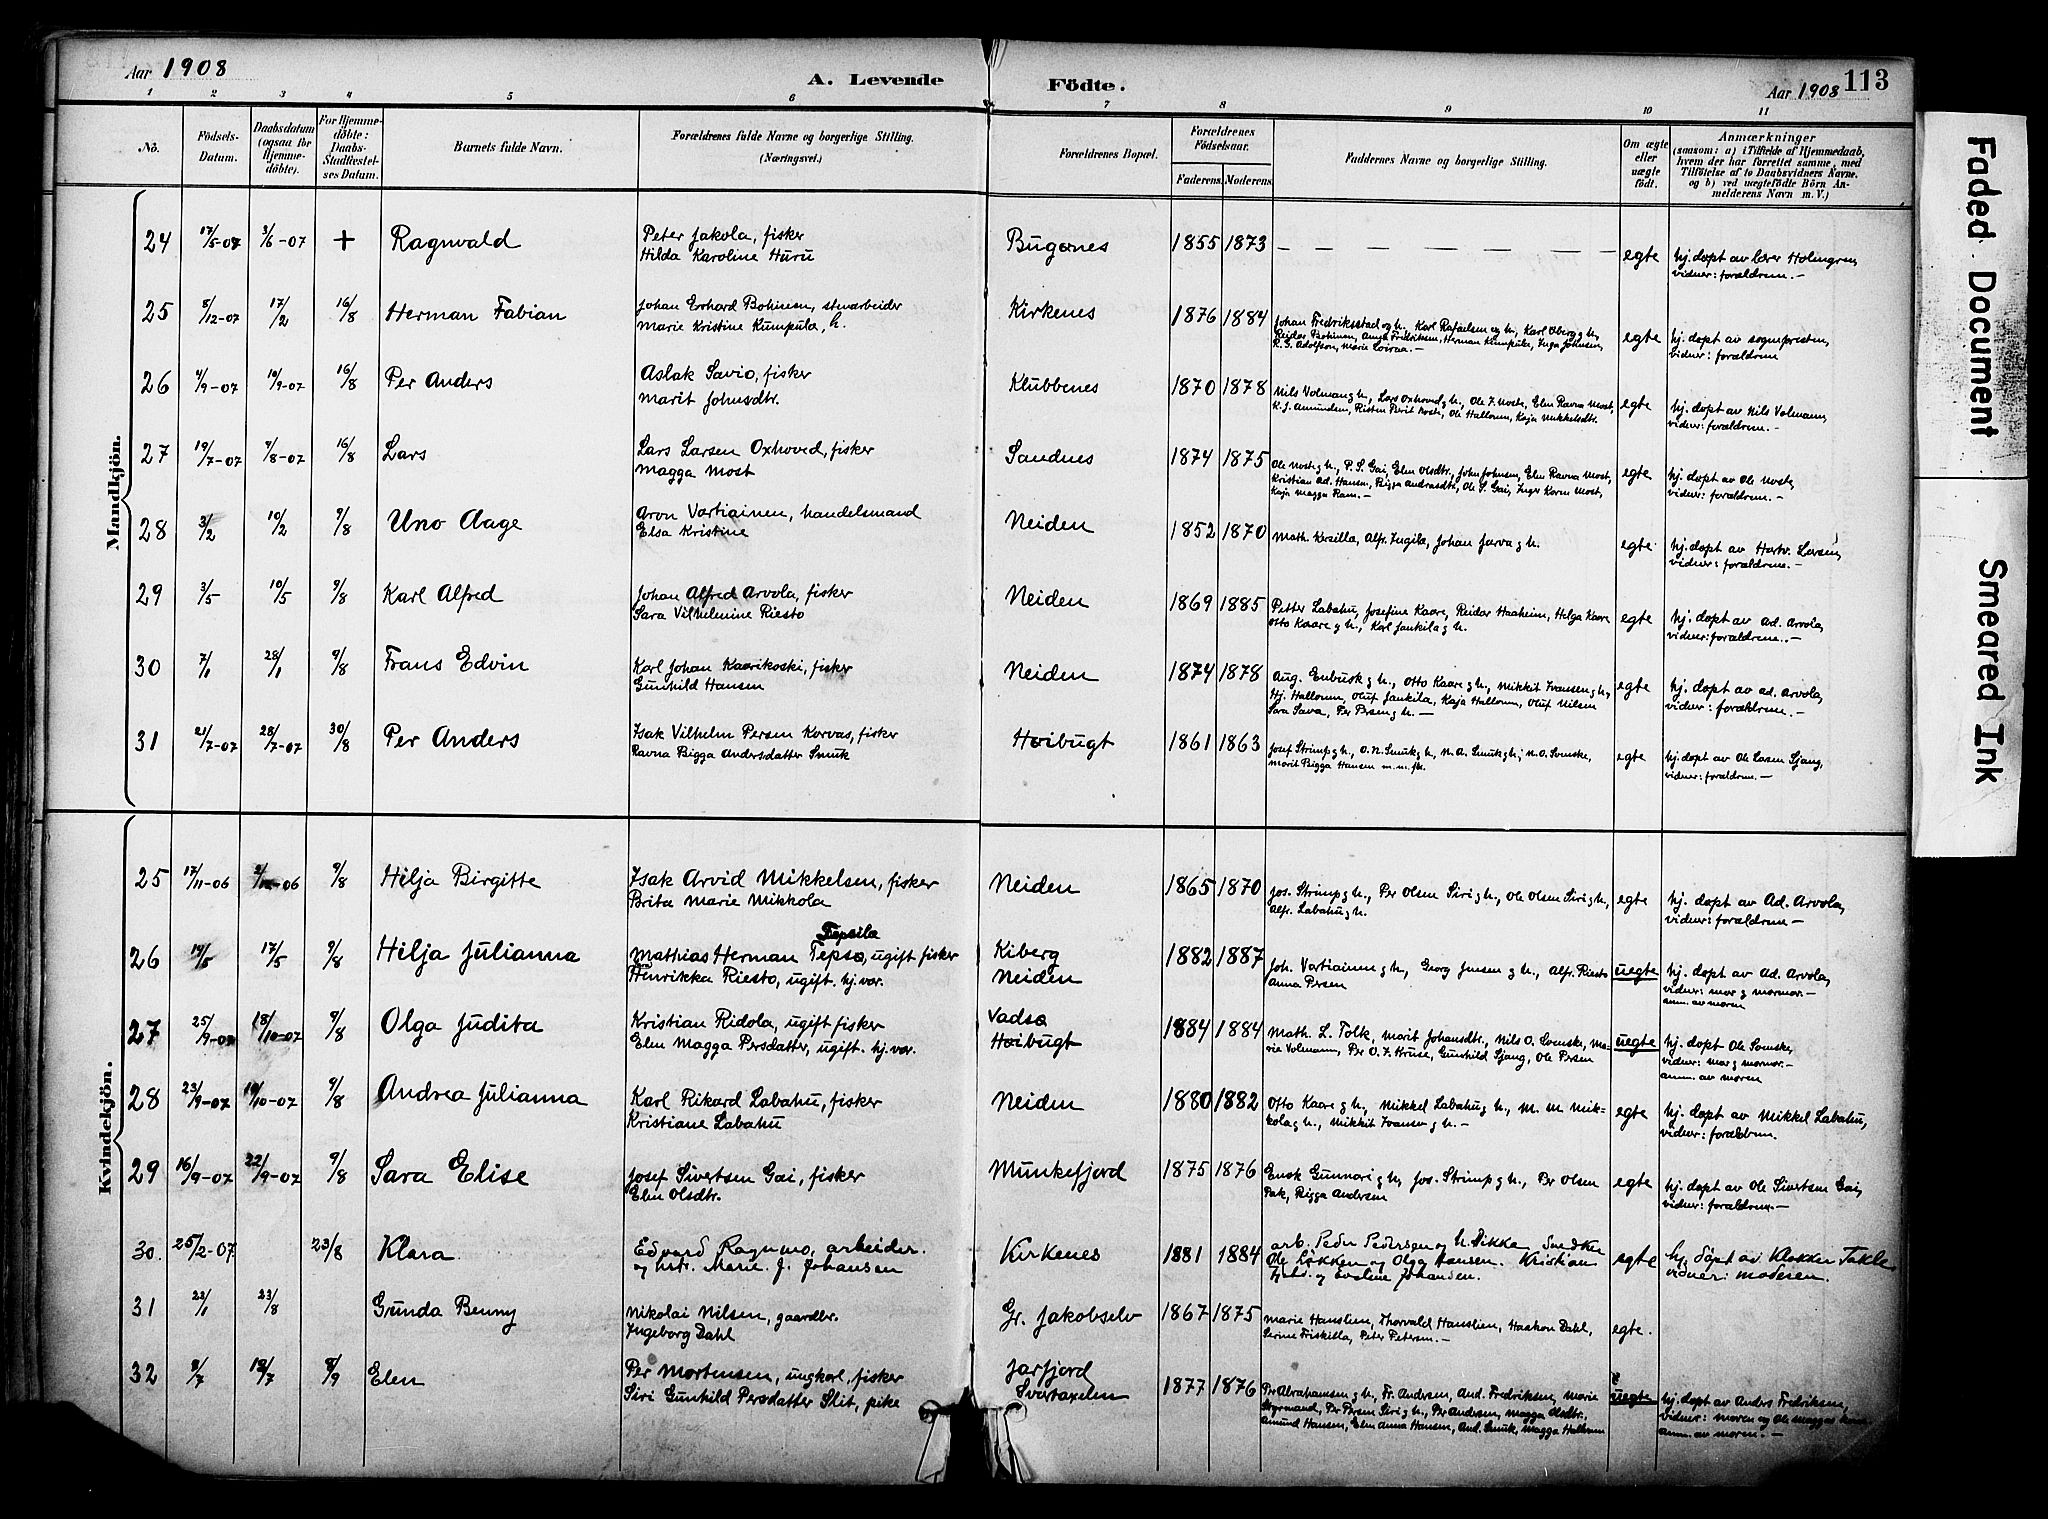 Aar 1908
A. Levende
Födte.
Aar 1908 113
1 2 3 4 5 6 7 8 9 10 11
No.
Födsels-
Datum.
Daabsdatum
(ogsaa for
Hjemme-
döbte).
For Hjemme-
döbte:
Daabs-
Stadfæstel-
ses Datum.
Barnets fulde Navn.
Forældrenes fulde Navne og borgerlige Stilling.
(Næringsvei.)
Forældrenes Bopæl.
Forældrenes
Födselsaar.
Faderens. Moderens.
Faddernes Navne og borgerlige Stilling.
Om ægte
eller
uægte
födt.
Anmærkninger
(saasom: a) i Tilfælde af Hjemmedaab,
hvem der har forrettet samme, med
Tilföielse af to Daabsvidners Navne.
og b) ved uægtefödte Börn An-
melderens Navn m. V.)
Mandkjön.
24 17/5-07 3/6-07 + Ragnvald Peter Jakola, fisker Bugønes 1855 1873 egte hj. døpt av lærer Holmgren,
Hilda Karoline Huru vidner: forældrene. –
25 8/12-07 17/2 16/8 Herman Fabian Johan Erhard Bohinen, stenarbeider Kirkenes 1876 1884 Johan Fredriksstad og h., Karl Rafaelsen og h., Karl Øberg g h,
Marie Kristine Kumpula, h. Reidar Bohinen, Anna Fredriksen, Herman Kumpula, Inga Johnsen, egte hj. døpt av sognepresten,
R. G. Adolfson, Marie Loiraa. – vidner: forældrene
26 4/9-07 10/9-07 16/8 Per Anders Aslak Savio, fisker Klubbenes 1870 1878 Nils Volman g h., Lars Oxhoved g h., Ole J. Moste, Elen Ravna Most, egte hj. døpt av Nils Volmann,
Marit Johnsdtr. K. J. Amundsen, Risten Berit Moste, Ole Halloum, Kaja Mikkelsdtr. vidner: forældrene. –
27 19/7-07 4/8-07 16/8 Lars Lars Larsen Oxhoved, fisker Sandnes 1874 1875 Ole Most g h., P. S. Gai, Elen Olsdtr., John Johnsen, Elen Ravna Most, egte hj. døpt av Ole Most,
Magga Most Kristian Ad. Hansen, Bigga Andrasdtr, Ole S. Gai, Inger Karen Most, vidner: forældrene. –
Kaja Magga Ram. –
28 3/2 10/2 9/8 Uno Aage Aron Vartiainen, handelsmand Neiden 1852 1870 Math. Karsilla, Alfr. Ingila, Johan Jarva g h. egte hj. døpt av Hartv. Larsen,
Elsa Kristine vidner: forældrene. –
29 3/5 10/5 9/8 Karl Alfred Johan Alfred Arvola, fisker Neiden 1869 1885 Petter Labahu, Josefine Kaare, Reidar Haaheim, Helga Kaare egte hj. døpt av Ad. Arvola,
Sara Vilhelmine Riesto Otto Kaare g h., Karl Jankila g h. vidner: forældrene. –
30 7/1 28/1 9/8 Frans Edvin Karl Johan Kaarikoski, fisker Neiden 1874 1878 Aug. Enbusk g h., Otto Kaare g h., Mikkit Ivansen g h, egte hj. døpt av ad. Arvola,
Gunhild Hansen Hj. Halloum, Oluf Jankila, Kaja Halloum, Oluf Nilsen vidner: forældrene. –
Sara Sava, Per Persen g h. –
31 21/7-07 28/7-07 30/8 Per Anders Isak Vilhelm Persen Korvas, fisker Høibugt 1861 1863 Josef Strimp g h., O. N. Smuk g h., N. A. Smuk g h., N. O. Svenske, egte hj. døpt av Ole Larsen Sjang,
Ravna Bigga Andersdatter Smuk Marit Bigga Hansen m. m. fl. vidner: forældrene. –
Kvindekjön.
25 17/11-06 2/12-06 9/8 Hilja Birgitte Isak Arvid Mikkelsen, fisker Neiden 1865 1870 Jos. Strimp g h., Per Olsen Siri g h., Ole Olsen Siri g h, egte hj. døpt av Ad. Arvola,
Brita Marie Mikkola Alfr. Labahu g h. vidner: forældrene –
26 14/5 17/5 9/8 Hilja Julianna Mathias Herman Tepsa, ugift fisker Kiberg 1882 1887 Joh. Vartiainen g h., Georg Jensen g h., Alfr. Riesto uegte hj. døpt av Ad. Arvola,
Henrikka Riesto, ugift. hj. vær. Neiden Anna Persen vidner: mor g mormor. –
anm. av moren
27 25/9-07 18/10-07 9/8 Olga Judita Kristian Ridola, ugift fisker Vadsø 1884 1884 Math. L. Tolk, Marit Johansdtr., Nils O. Svenske, Ma- uegte hj. døpt Ole Svenske,
Elen Magga Persdatter, ugift. hj. vær. Høibugt rie Volmann, Per O. J. Kruse, Gunhild Sjang, Ole Persen vidner: mor g mormor. –
anm. av moren
28 23/9-07 19/10-07 9/8 Andrea Julianna Karl Rikard Labahu, fisker Neiden 1880 1882 Otto Kaare g h., Mikkel Labahu g h., M. M. Mik- egte hj. døpt av Mikkel Labahu,
Kristiane Labahu kola g h., Mikkit Ivansen g h. – vidner: forældrene.
29 16/9-07 22/9-07 9/8 Sara Elise Josef Sivertsen Gai, fisker Munkefjord 1875 1876 Enok Gunnari g h, Jos. Strimp g h., Per Olsen egte hj. døpt av Ole Sivertsen Gai,
Elen Olsdtr. Pak, Bigga Andersen vidner: forældrene. –
30. 25/2-07. 23/8 Klara. Edvard Ragnmo, arbeider. Kirkenes 1881 1884 arb. Peder Pedersen og h. Mikka, Snedker egte hj. døpt av Klokker Takle
og hst. Marie. J. Johansen Ole Løkken og Olga Hansen. Kristian vidner: moderen.
og Eveline Johansen.
31 23/1 23/8 Gunda Benny Nikolai Nilsen, gaardbr. Gr. Jakobselv 1867 1875 Marie Hanslien, Thorvald Hanslien, Haakon Dahl, egte.
Ingeborg Dahl Serine Friskilla, Peter Petersen. –
32 8/7 18/7 8/9 Elen Per Mortensen, ungkarl, fisker Jarfjord 1877 1876 Per Abrahamsen g h., Fr. Andersen, And. Fredriksen, Marie uegte hj. døpt av Anders Fredriksen,
Siri Gunhild Persdatter Slit, pike Svartaxelen Styrmand, Per Persen Siri g h., Per Andersen, Magga Olsdtr. vidner: moren og Ole Magga
Amund Hansen, Elen Anna Hansen, And. Smuk, Magga Halloum anm. av moren. –
Faded Document
Smeared Ink